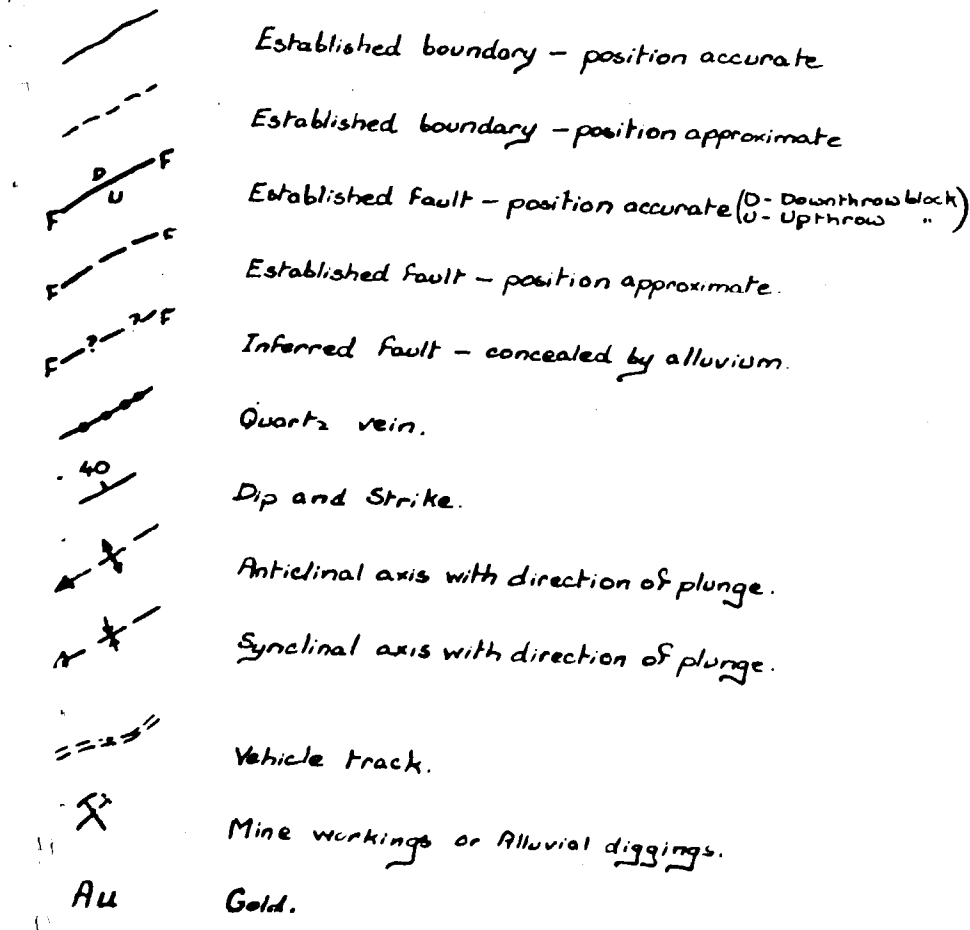 Established boundary – position accurate
Established boundary – position approximate
D
F U F Established fault – position accurate (D - Downthrow block
U - Upthrow ")
F F Established fault – position approximate.
F ? ? F Inferred fault – concealed by alluvium.
Quartz vein.
40 Dip and Strike.
Anticlinal axis with direction of plunge.
Synclinal axis with direction of plunge.
Vehicle track.
Mine workings or Alluvial diggings.
Au Gold.